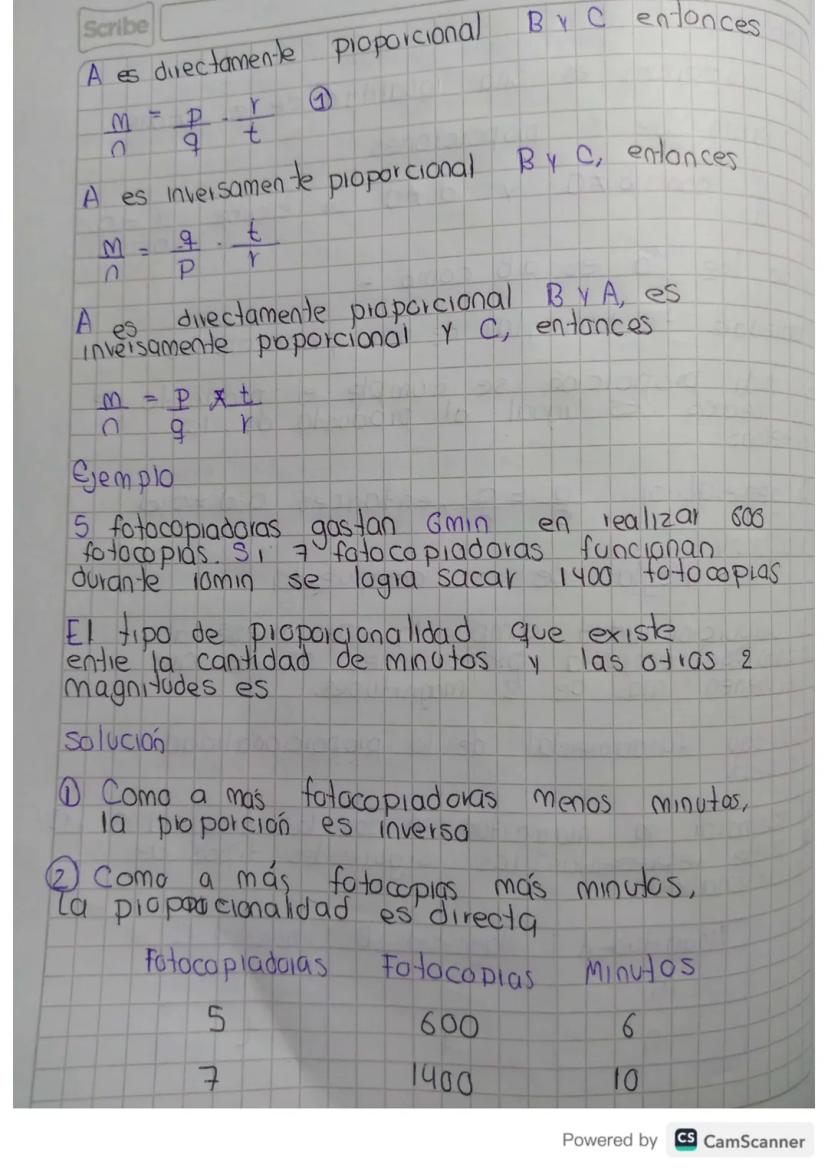 Scribe
A es directamente proporcional B y C entonces
m/n = p/q · r/t ①
A es inversamente proporcional B y C, entonces
m/n = q/p · t/r
A es directamente proporcional B y A, es
inversamente poporcional y C, entonces
m/n = p/q * t/r
Ejemplo
5 fotocopiadoras gastan 6min en realizar 600
fotocopias. Si 7 fotocopiadoras funcionan
durante 10min se logra sacar 1400 fotocopias
El tipo de proporcionalidad que existe
entre la cantidad de mnutos y las otras 2
magnitudes es
Solución
① Como a mas fotocopiadoras menos minutos,
la proporción es inversa
② Como a más fotocopias más minutos,
La proporcionalidad es directa
Fotocopiadoras Fotocopias Minutos
5 600 6
7 1400 10
Powered by CS CamScanner